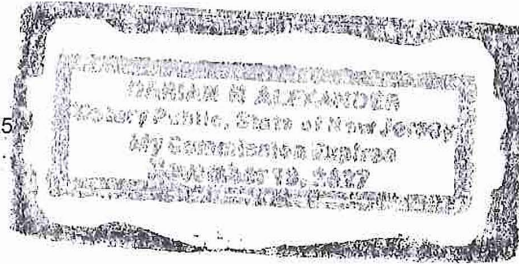 MARIAN R ALEXANDER
5 Notary Public, State of New Jersey
My Commission Expires
November 19,